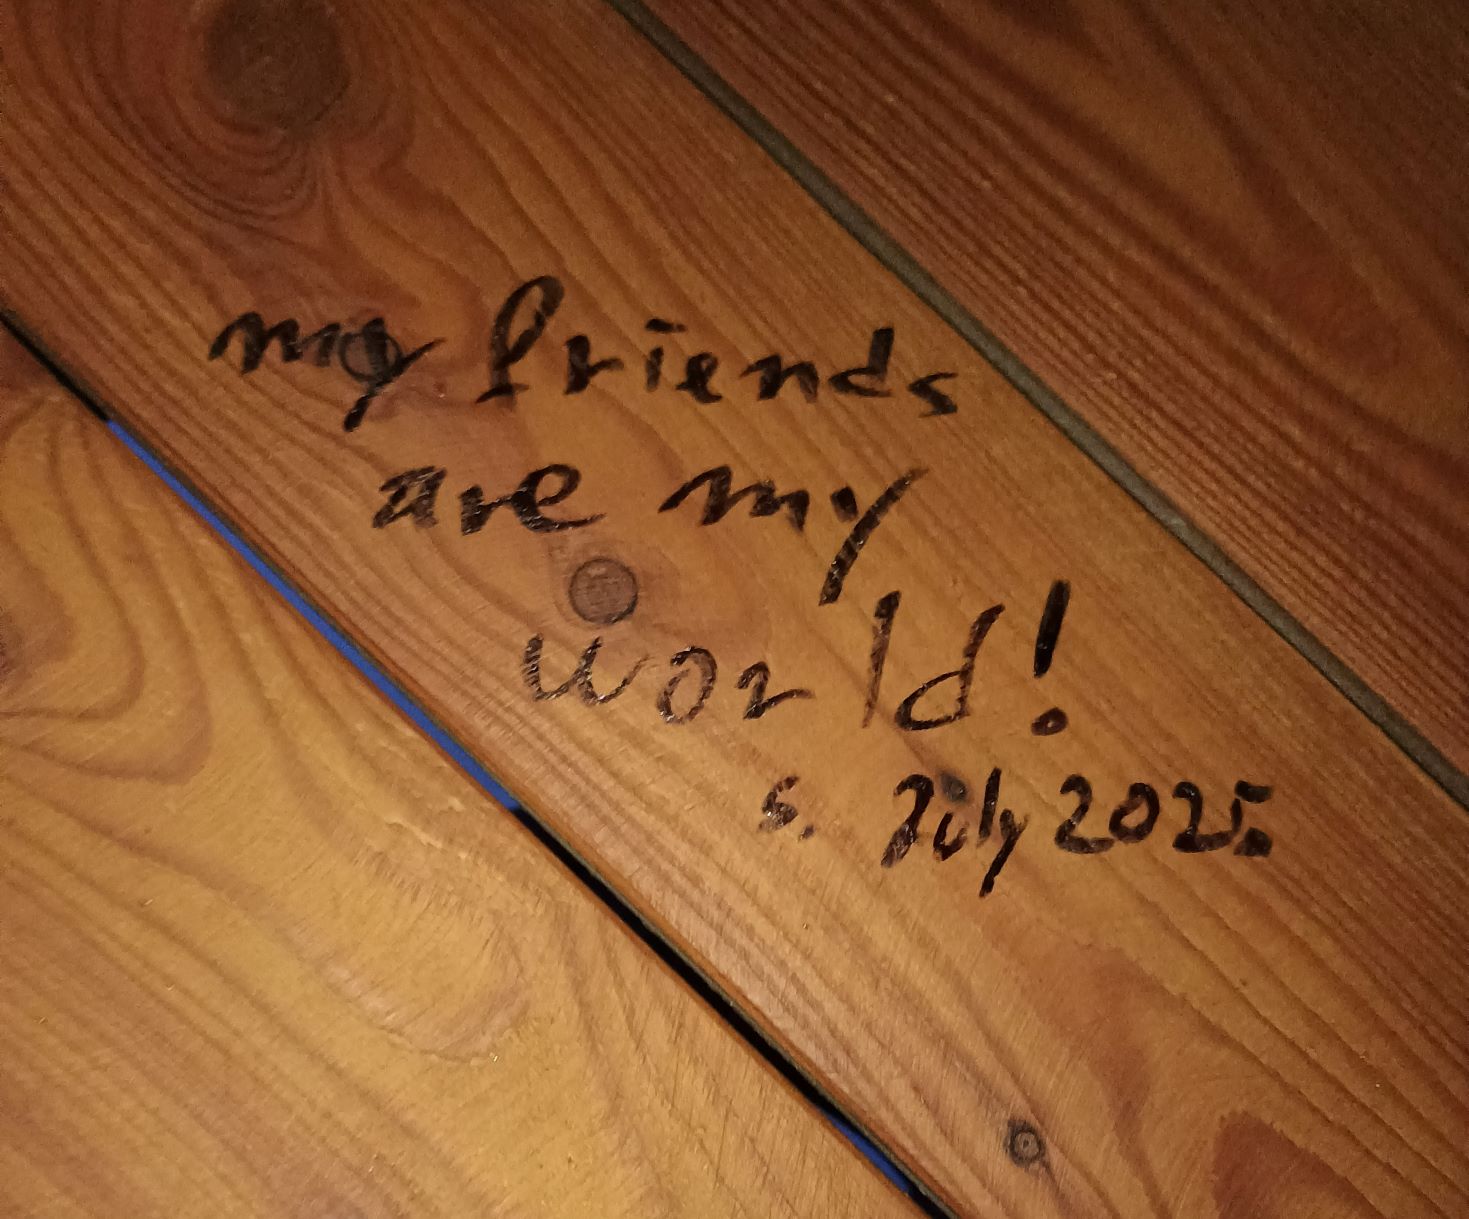 my friends
are my
world!
5. July 2025.